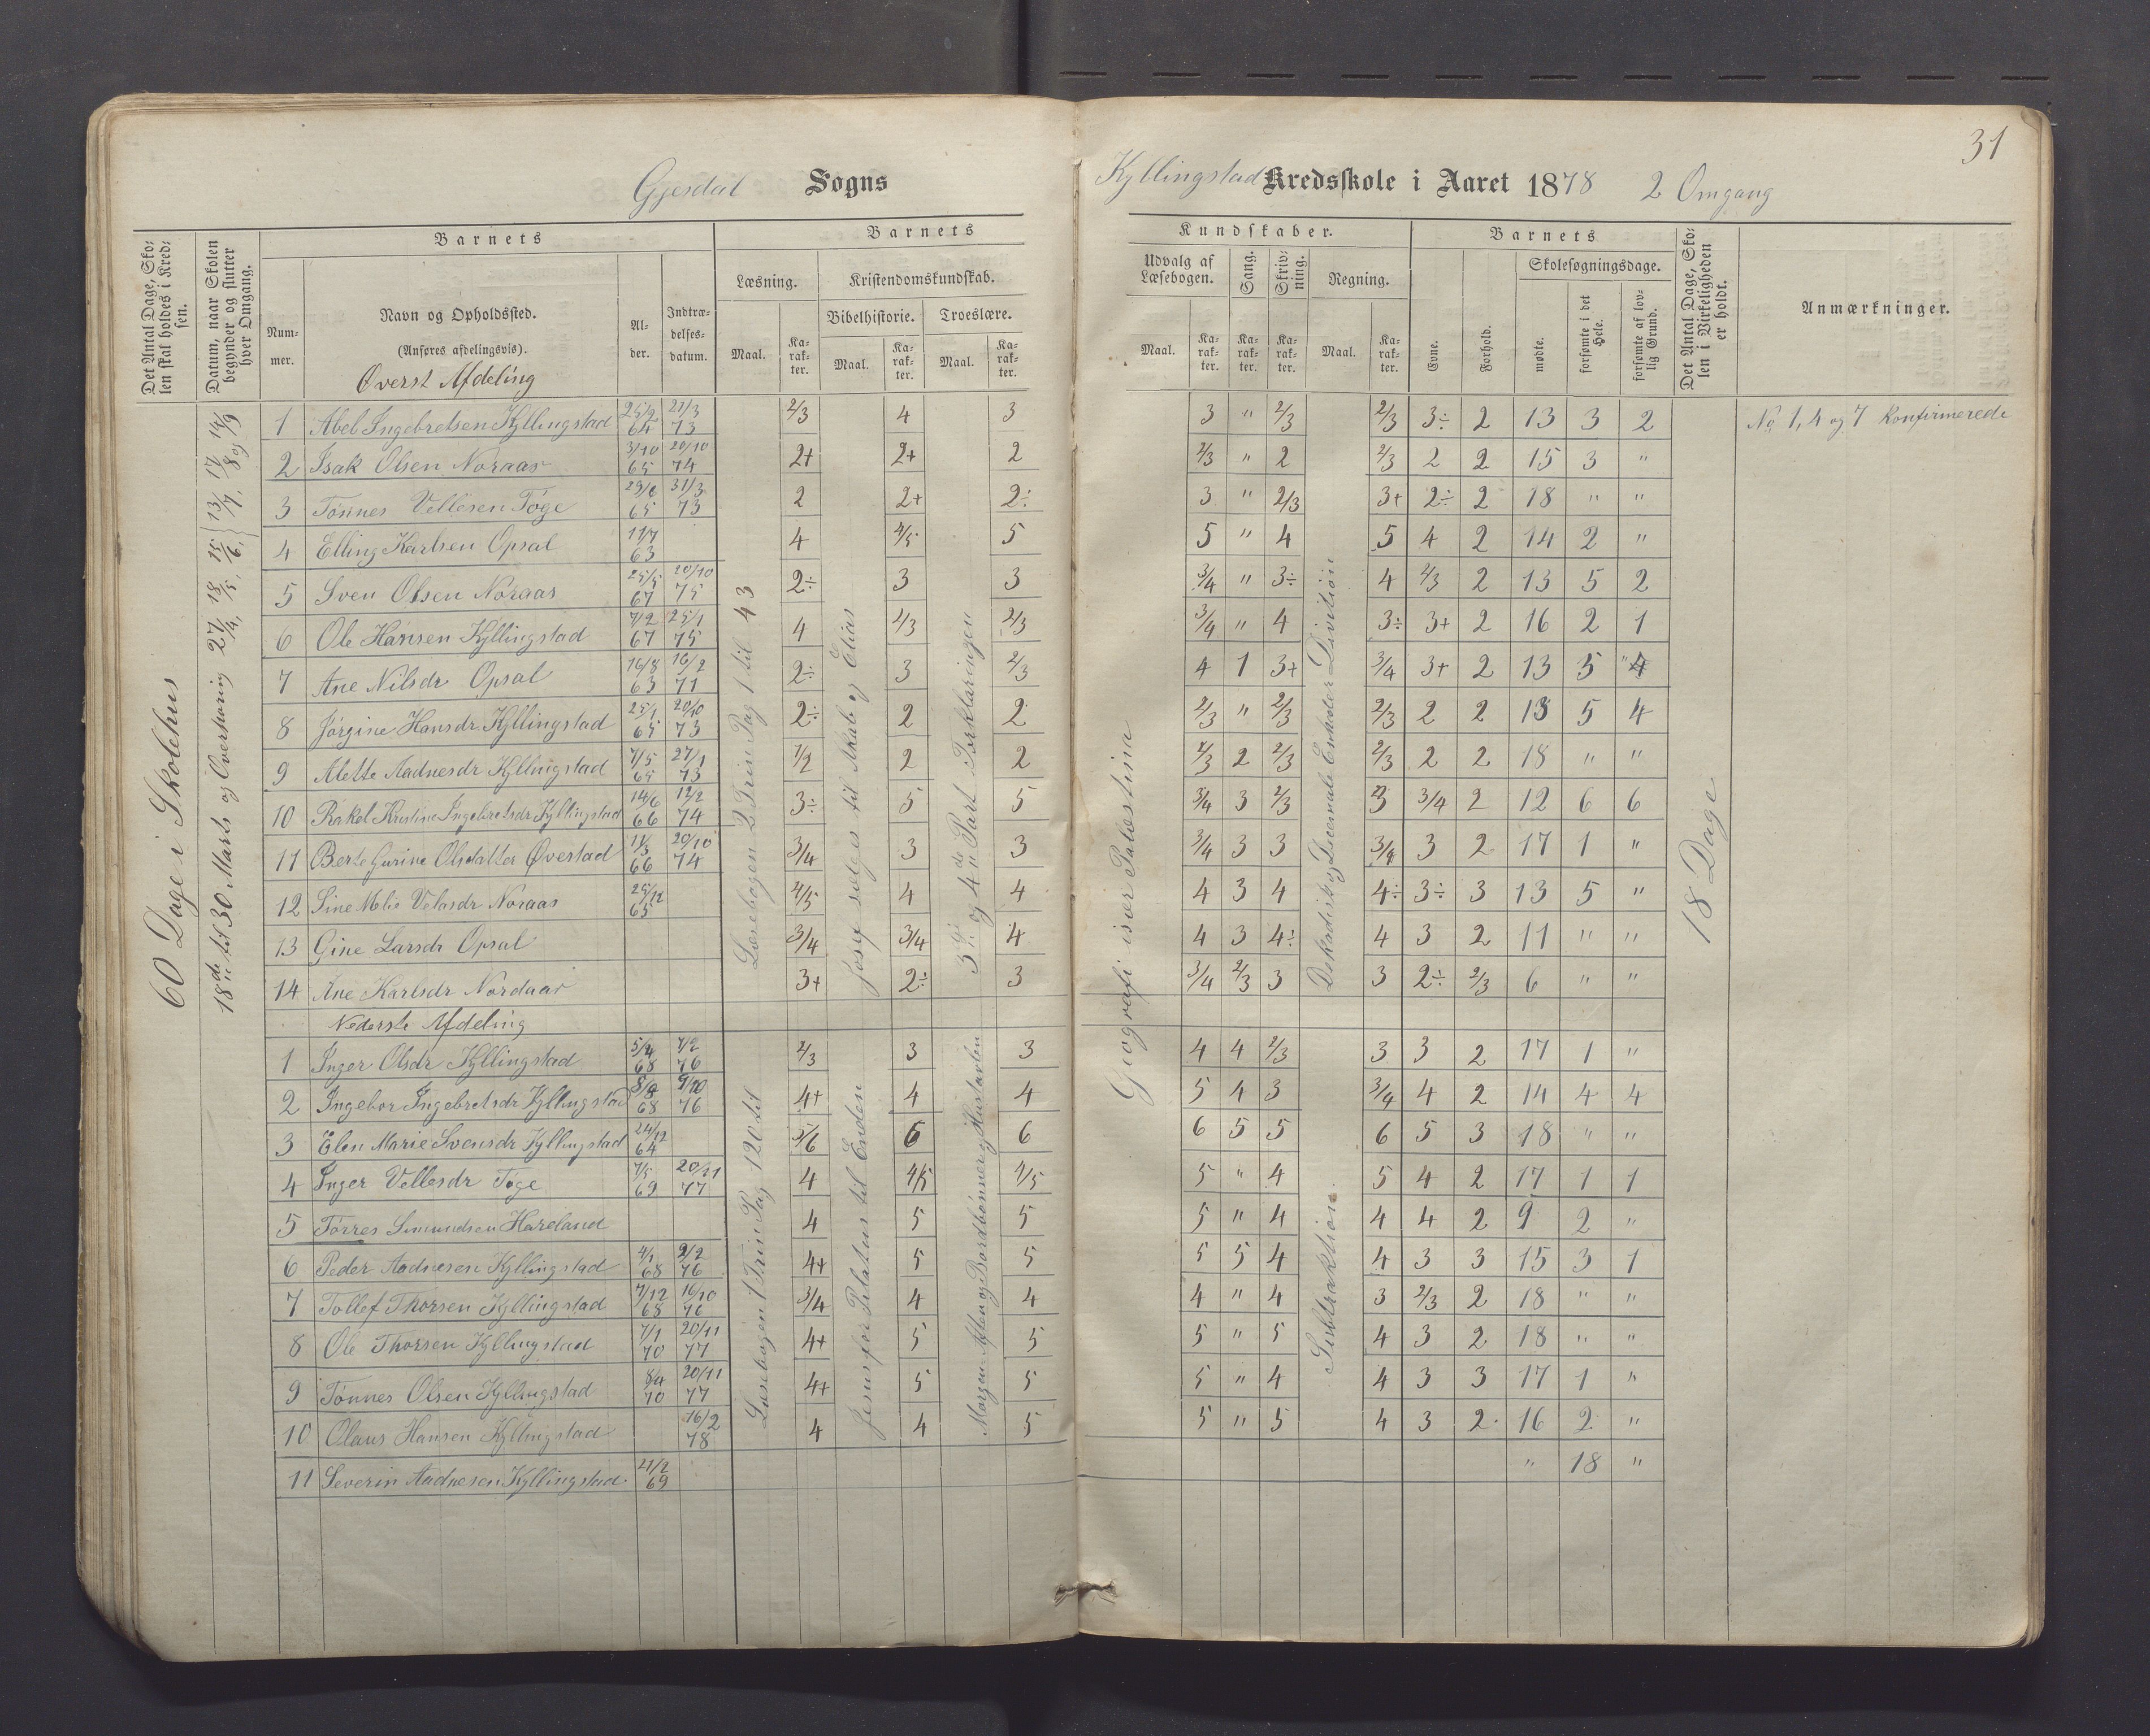 31
Gjesdal Sogns Kyllingstad Kredsskole i Aaret 1878 2 Omgang
Det Antal Dage, Skolen skal holdes i Kredsen.
Datum, naar Skolen begynder og slutter hver Omgang.
Barnets
Nummer.
Navn og Opholdssted.
(Anføres afdelingsvis).
Øverst Afdeling
Alder.
Indtrædelsesdatum.
Barnets Kundskaber.
Læsning.
Maal.
Karakter.
Kristendomskundskab.
Bibelhistorie.
Maal.
Karakter.
Troeslære.
Maal.
Karakter.
Udvalg af Læsebogen.
Maal.
Karakter.
Sang.
Karakter.
Skrivning.
Karakter.
Regning.
Maal.
Karakter.
Barnets
Evne.
Forhold.
Skolesøgningsdage.
mødte.
forsømte i det Hele.
forsømte af lovlig Grund.
Det Antal Dage, Skolen i Virkeligheden er holdt.
Anmærkninger.
60 Dage i Skolehus
18de til 30 Marts og Overhøring 27/4, 18/5, 15/6, 13/7, 17/8 og 14/9
Læsebogen 2 Trin Pag 1 til 43
Josef sælges til Akab og Elias
3die og 4de Part i Forklaringen
Geografi især Palæstina
Dekadisk og Decimale Enheder Divition
18 Dage
1 Abel Ingebretsen Kyllingstad 25/2 64 21/3 73 2/3 4 3 3 " 2/3 2/3 3÷ 2 13 3 2 No 1, 4 og 7 Konfirmerede
2 Isak Olsen Noraas 3/10 65 20/10 74 2+ 2+ 2 2/3 " 2 2/3 2 2 15 3 "
3 Tønnes Vellesen Tøge 29/6 65 31/3 73 2 2+ 2÷ 3 " 2/3 3+ 2÷ 2 18 " "
4 Elling Karlsen Opsal 11/7 63 4 4/5 5 5 " 4 5 4 2 14 2 "
5 Sven Olsen Noraas 25/5 67 20/10 75 2÷ 3 3 3/4 " 3÷ 4 2/3 2 13 5 2
6 Ole Hansen Kyllingstad 7/2 67 25/1 75 4 2/3 2/3 3/4 " 4 3÷ 3+ 2 16 2 1
7 Ane Nilsdr Opsal 16/8 63 16/2 71 2÷ 3 2/3 4 1 3+ 3/4 3+ 2 13 5 "
8 Jørgine Hansdr Kyllingstad 25/1 65 20/10 73 2÷ 2 2 2/3 " 2/3 2/3 2 2 13 5 4
9 Alette Aadnesdr Kyllingstad 7/5 65 27/1 73 1/2 2 2 2/3 2 2/3 2/3 2 2 18 " "
10 Rakel Kristine Ingebretsdr Kyllingstad 14/6 66 12/2 74 3÷ 5 5 3/4 3 2/3 2/3 3/4 2 12 6 6
11 Berte Gurine Olsdatter Øvestad 11/3 66 20/10 74 3/4 3 3 3/4 3 3 3/4 3 2 17 1 "
12 Sine Malie Velasdr Noraas 25/12 65 4/5 4 4 4 3 4 4÷ 3÷ 3 13 5 "
13 Gine Larsdr Opsal 3/4 3/4 4 4 3 4÷ 4 3 2 11 " "
14 Ane Karlsdr Nordaas 3+ 2÷ 3 3/4 2/3 3 3 2÷ 2/3 6 " "
Nederste Afdeling
Læsebogen 1 Trin Pag 120 til
Jesus for Pilatus til Enden
Morgen- Aften og Bordbønner og Hustavlen
Subtraktion.
1 Inger Olsdr Kyllingstad 5/4 68 7/2 76 2/3 3 3 4 4 2/3 3 3 2 17 1 "
2 Ingebor Ingebretsdr Kyllingstad 8/8 68 9/10 76 4+ 4 4 5 4 3 3/4 4 2 14 4 4
3 Elen Marie Svensdr Kyllingstad 24/12 64 5/6 6 6 6 5 5 6 5 3 18 " "
4 Inger Vellesdr Tøge 7/5 69 20/11 77 4 4/5 4/5 5 " 4 5 4 2 17 1 1
5 Tørres Simundsen Hareland 4 5 5 5 " 4 4 4 2 9 2 "
6 Peder Aadnesen Kyllingstad 4/1 68 2/2 76 4+ 5 5 5 5 4 4 3 3 15 3 1
7 Tollef Thorsen Kyllingstad 7/12 68 16/10 76 3/4 4 4 4 " 4 3 2/3 2 18 " "
8 Ole Thorsen Kyllingstad 7/1 70 20/11 77 4+ 5 5 5 " 5 4 3 2 18 " "
9 Tønnes Olsen Kyllingstad 8/4 70 20/11 77 4+ 5 5 5 " 4 4 3 3 17 1 "
10 Olaus Hansen Kyllingstad 16/2 78 4 4 5 5 " 5 4 3 2 16 2 "
11 Severin Aadnesen Kyllingstad 21/2 69 " 18 "